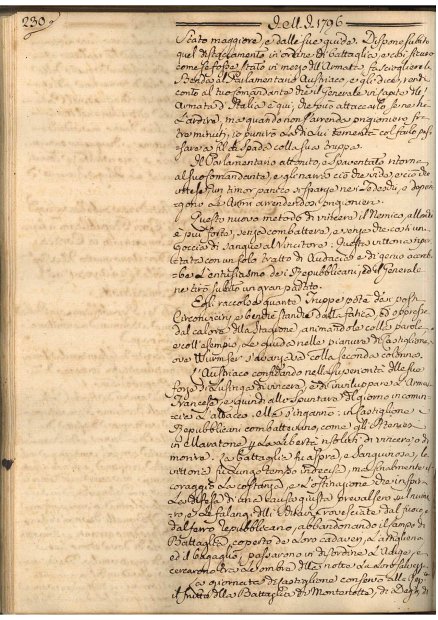 230
dell 1796
Stato maggiore, e dalle sue guide. Dispone subito
quel distaccamento in ordine di battaglia, e così sicuro
come se fosse stato in mezzo dell'Armata fa sciogliere la
Benda al Parlamentario Austriaco, e gli dice, rendi
conto al tuo Comandante che il Generale in capo dell'
Armata d'Italia è qui, che può attaccarlo, se ne hà
l'ardire, ma quando non s'arrenda prigioniero frà
tre minuti, io punirò la di lui temerità col farlo pas-
sare a fil di spada colla sua truppa.
Il Parlamentario attonito, e spaventato ritorna
al suo Comandante, e gli narra ciò che vide, e ciò che
intese, un timor panico si sparge nei Tedeschi, e depon-
gono le Armi arrendendosi prigionieri.
Questo nuovo metodo di vincere il Nemico, allorchè
è più forte, senza combattere, e senza che costi un
goccia di sangue al Vincitore: Questa vittoria ripor-
tata con un solo tratto di Audacia, e di genio accreb-
be l'entusiasmo dei Repubblicani, ed il Generale
ne tirò subito un gran partito.
Egli raccolse quante Truppe potè dai posti
Circonvicini, e benchè stanche dalla fatica, ed oppresse
dal calore della stagione, animandole colle parole,
e coll'esempio, le guida nelle pianure di Castiglione,
ove Wurmser s'avanzava colla seconda colonna.
L'Austriaco confidando nella superiorità delle sue
forze si lusinga di vincere, e di inviluppare l'Armata
Francese, e quindi allo spuntare del giorno incomin-
cia l'attacco. Ma s'ingannò: in Castiglione i
Repubblicani combattevano, come gli Ateniesi
in Maratona, per la libertà risoluti di vincere, o di
morire. La battaglia fù aspra, e sanguinosa, la
vittoria fù lungo tempo indecisa, ma finalmente il
coraggio, la costanza, e l'ostinazione che inspira
la difesa di una causa giusta prevalsero sul nume-
ro, e le falangi dell'Austria rovesciate dal fuoco, e
dal ferro repubblicano, abbandonando il campo di
Battaglia coperto de' loro cadaveri, l'artiglieria
ed il bagaglio, passarono in disordine l'Adige, e
cercarono trà le ombre della notte la loro salvezza.
La giornata di Castiglione conservò alla Rep.ca
il frutto della Battaglia di Montenotte, di Dego, di